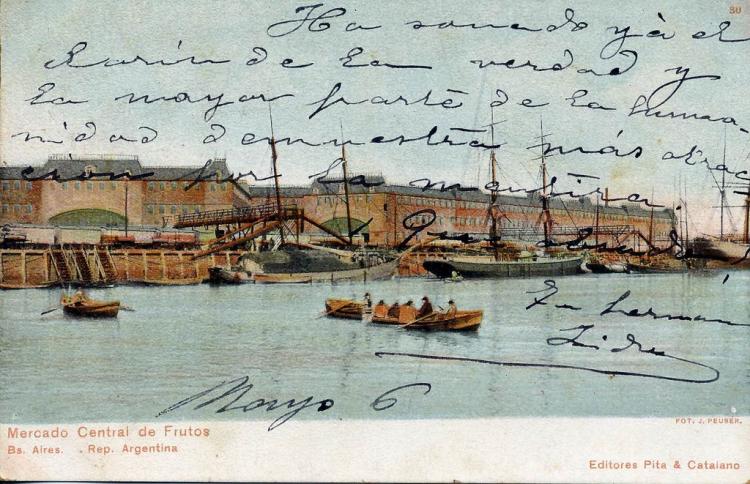 30
Ha sonado yá el
clarin de la verdad y
la mayor parte de la huma-
nidad demuestra más atrac-
cion por la mentira.
¡Que
Tu herman
Isidro
Mayo 6
FOT. J. PEUSER.
Mercado Central de Frutos
Bs. Aires. . Rep. Argentina
Editores Pita & Catalano